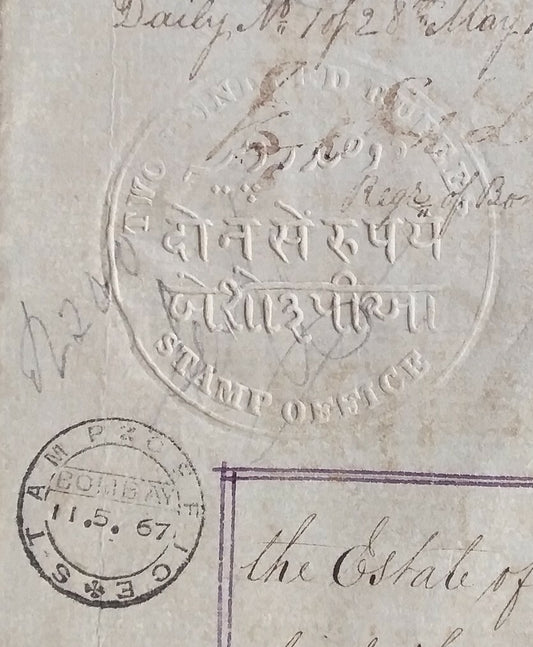 Daily No. 1 of 28th May
TWO HUNDRED RUPEES
Regr. of Bo
दोन सें रुपयें
બેશોરૂપીઆ
STAMP OFFICE
R200
STAMP OFFICE
BOMBAY
11.5.67
the Estate of